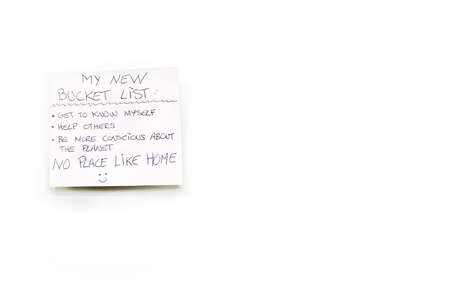 MY NEW
BUCKET LIST:
• GET TO KNOW MYSELF
• HELP OTHERS
• BE MORE CONSCIOUS ABOUT
THE PLANET
NO PLACE LIKE HOME